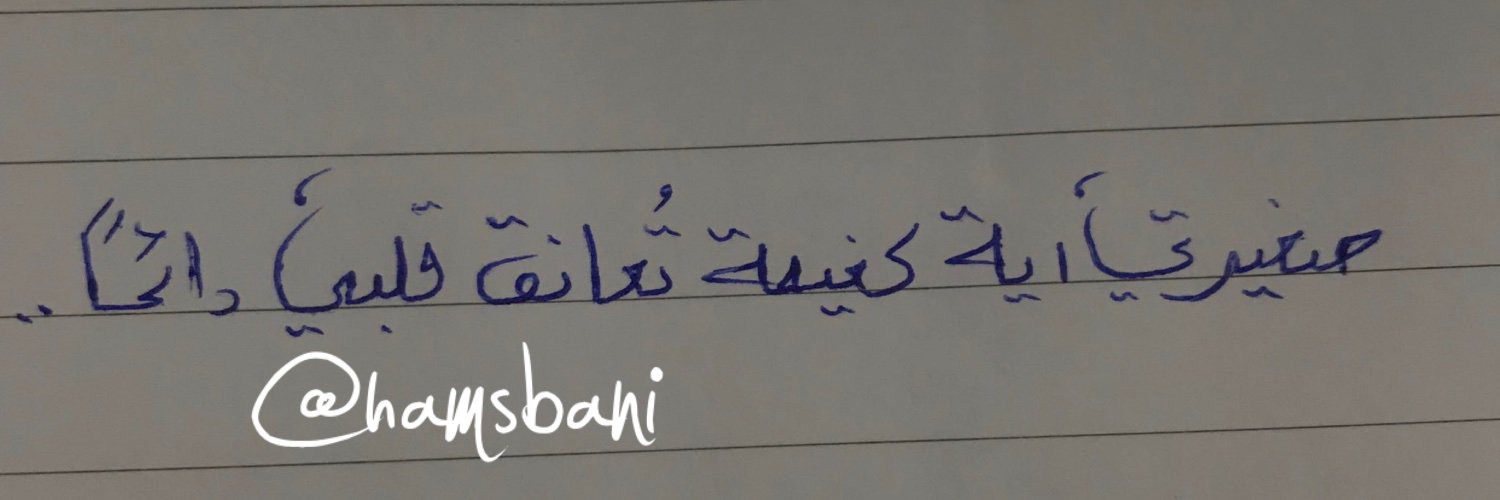 صغيرتي اية كغيمة تُعانق قلبي دائمًا ..
@hamsbani